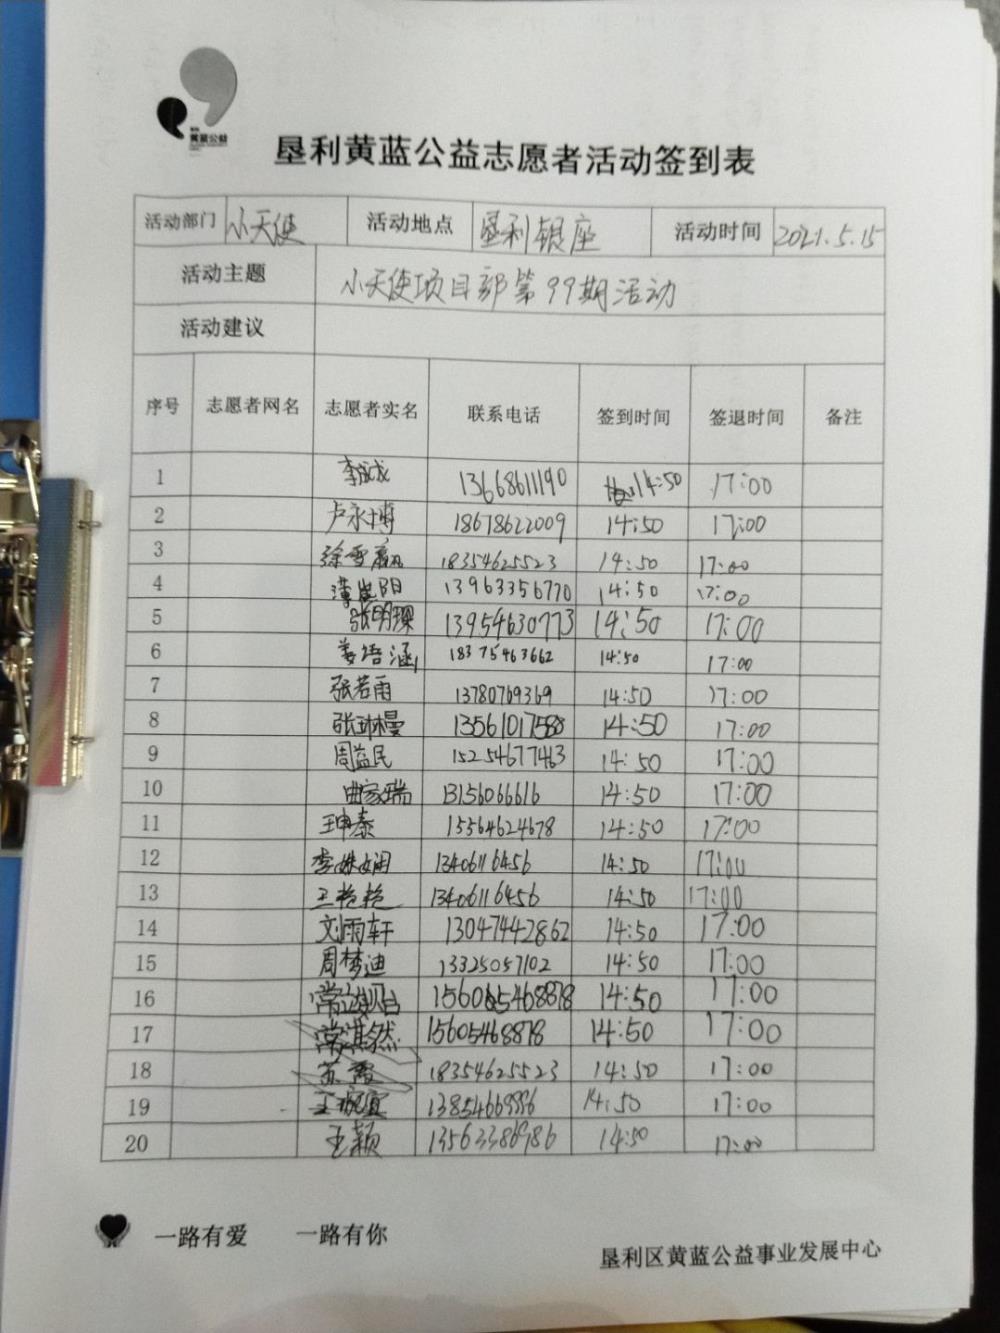 黄蓝公益
垦利黄蓝公益志愿者活动签到表
活动部门 小天使 活动地点 垦利银座 活动时间 2021.5.15
活动主题 小天使项目部第99期活动
活动建议
序号 志愿者网名 志愿者实名 联系电话 签到时间 签退时间 备注
1 李成龙 13668611190 14:50 17:00
2 卢永博 18678622009 14:50 17:00
3 徐雪赢 18354625523 14:50 17:00
4 薄岚阳 13963356770 14:50 17:00
5 张明琛 13954630773 14:50 17:00
6 姜语涵 18375463662 14:50 17:00
7 张若雨 13780769369 14:50 17:00
8 张琳曼 13561017580 14:50 17:00
9 周益民 15254677463 14:50 17:00
10 曲家瑞 13156066616 14:50 17:00
11 王申泰 15564624678 14:50 17:00
12 李姝娴 13406116456 14:50 17:00
13 王艳艳 13406116456 14:50 17:00
14 刘雨轩 13047442862 14:50 17:00
15 周梦迪 13325057102 14:50 17:00
16 14:50 17:00
17 常淇然 15605468878 14:50 17:00
18 苏霞 18354625523 14:50 17:00
19 14:50 17:00
20 王颖 13563386986 14:50 17:00
一路有爱 一路有你
垦利区黄蓝公益事业发展中心